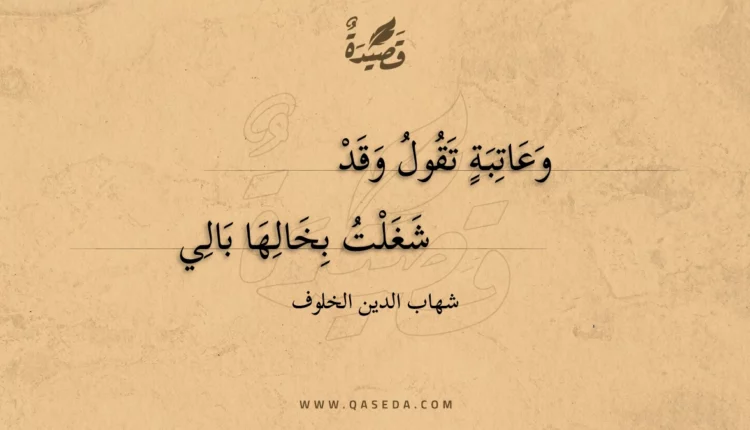 قَصِيدَةٌ
وَعَاتِبَةٍ تَقُولُ وَقَدْ
شَغَلْتُ بِخَالِهَا بَالِي
شهاب الدين الخلوف
WWW.QASEDA.COM